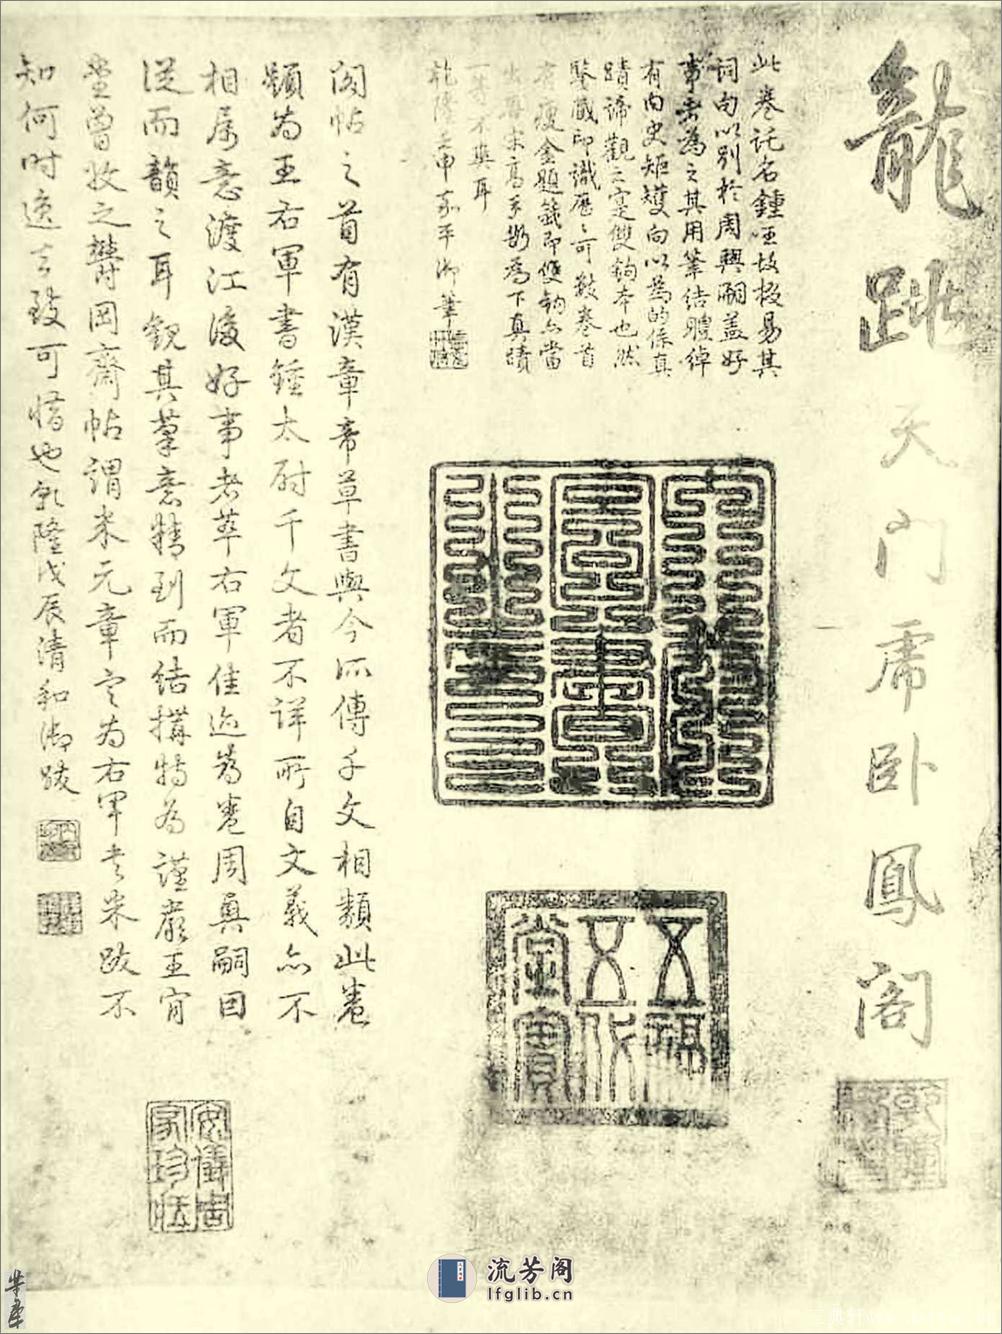 龍跳天門虎卧鳳閣
乾隆
此卷託名鍾
詞句以別於周興嗣蓋好
事者為之其用筆結體綽
有內史矩矱向以為的係真
蹟諦觀之寔雙鈎本也然
鑒藏印識歷歷可數卷首
有瘦金題籤即雙鈎亦當
出
一等不與耳
乾隆
御筆
太上皇帝之寶
五福五代堂寶
閣帖之首有漢章帝草書與今所傳千文相類此卷
題為王右軍書鍾太尉千文者不詳所自文義亦不
相屬意渡江後好事者萃右軍佳迹為卷周興嗣因
從而韻之耳觀其筆意精到而結構特為謹嚴王肯
堂曾收之欝岡齋帖謂米元章定為右軍書米跋不
知何時逸去致可惜也乾隆戊辰清和御跋
安儀周家珍藏
流芳阁
lfglib.cn